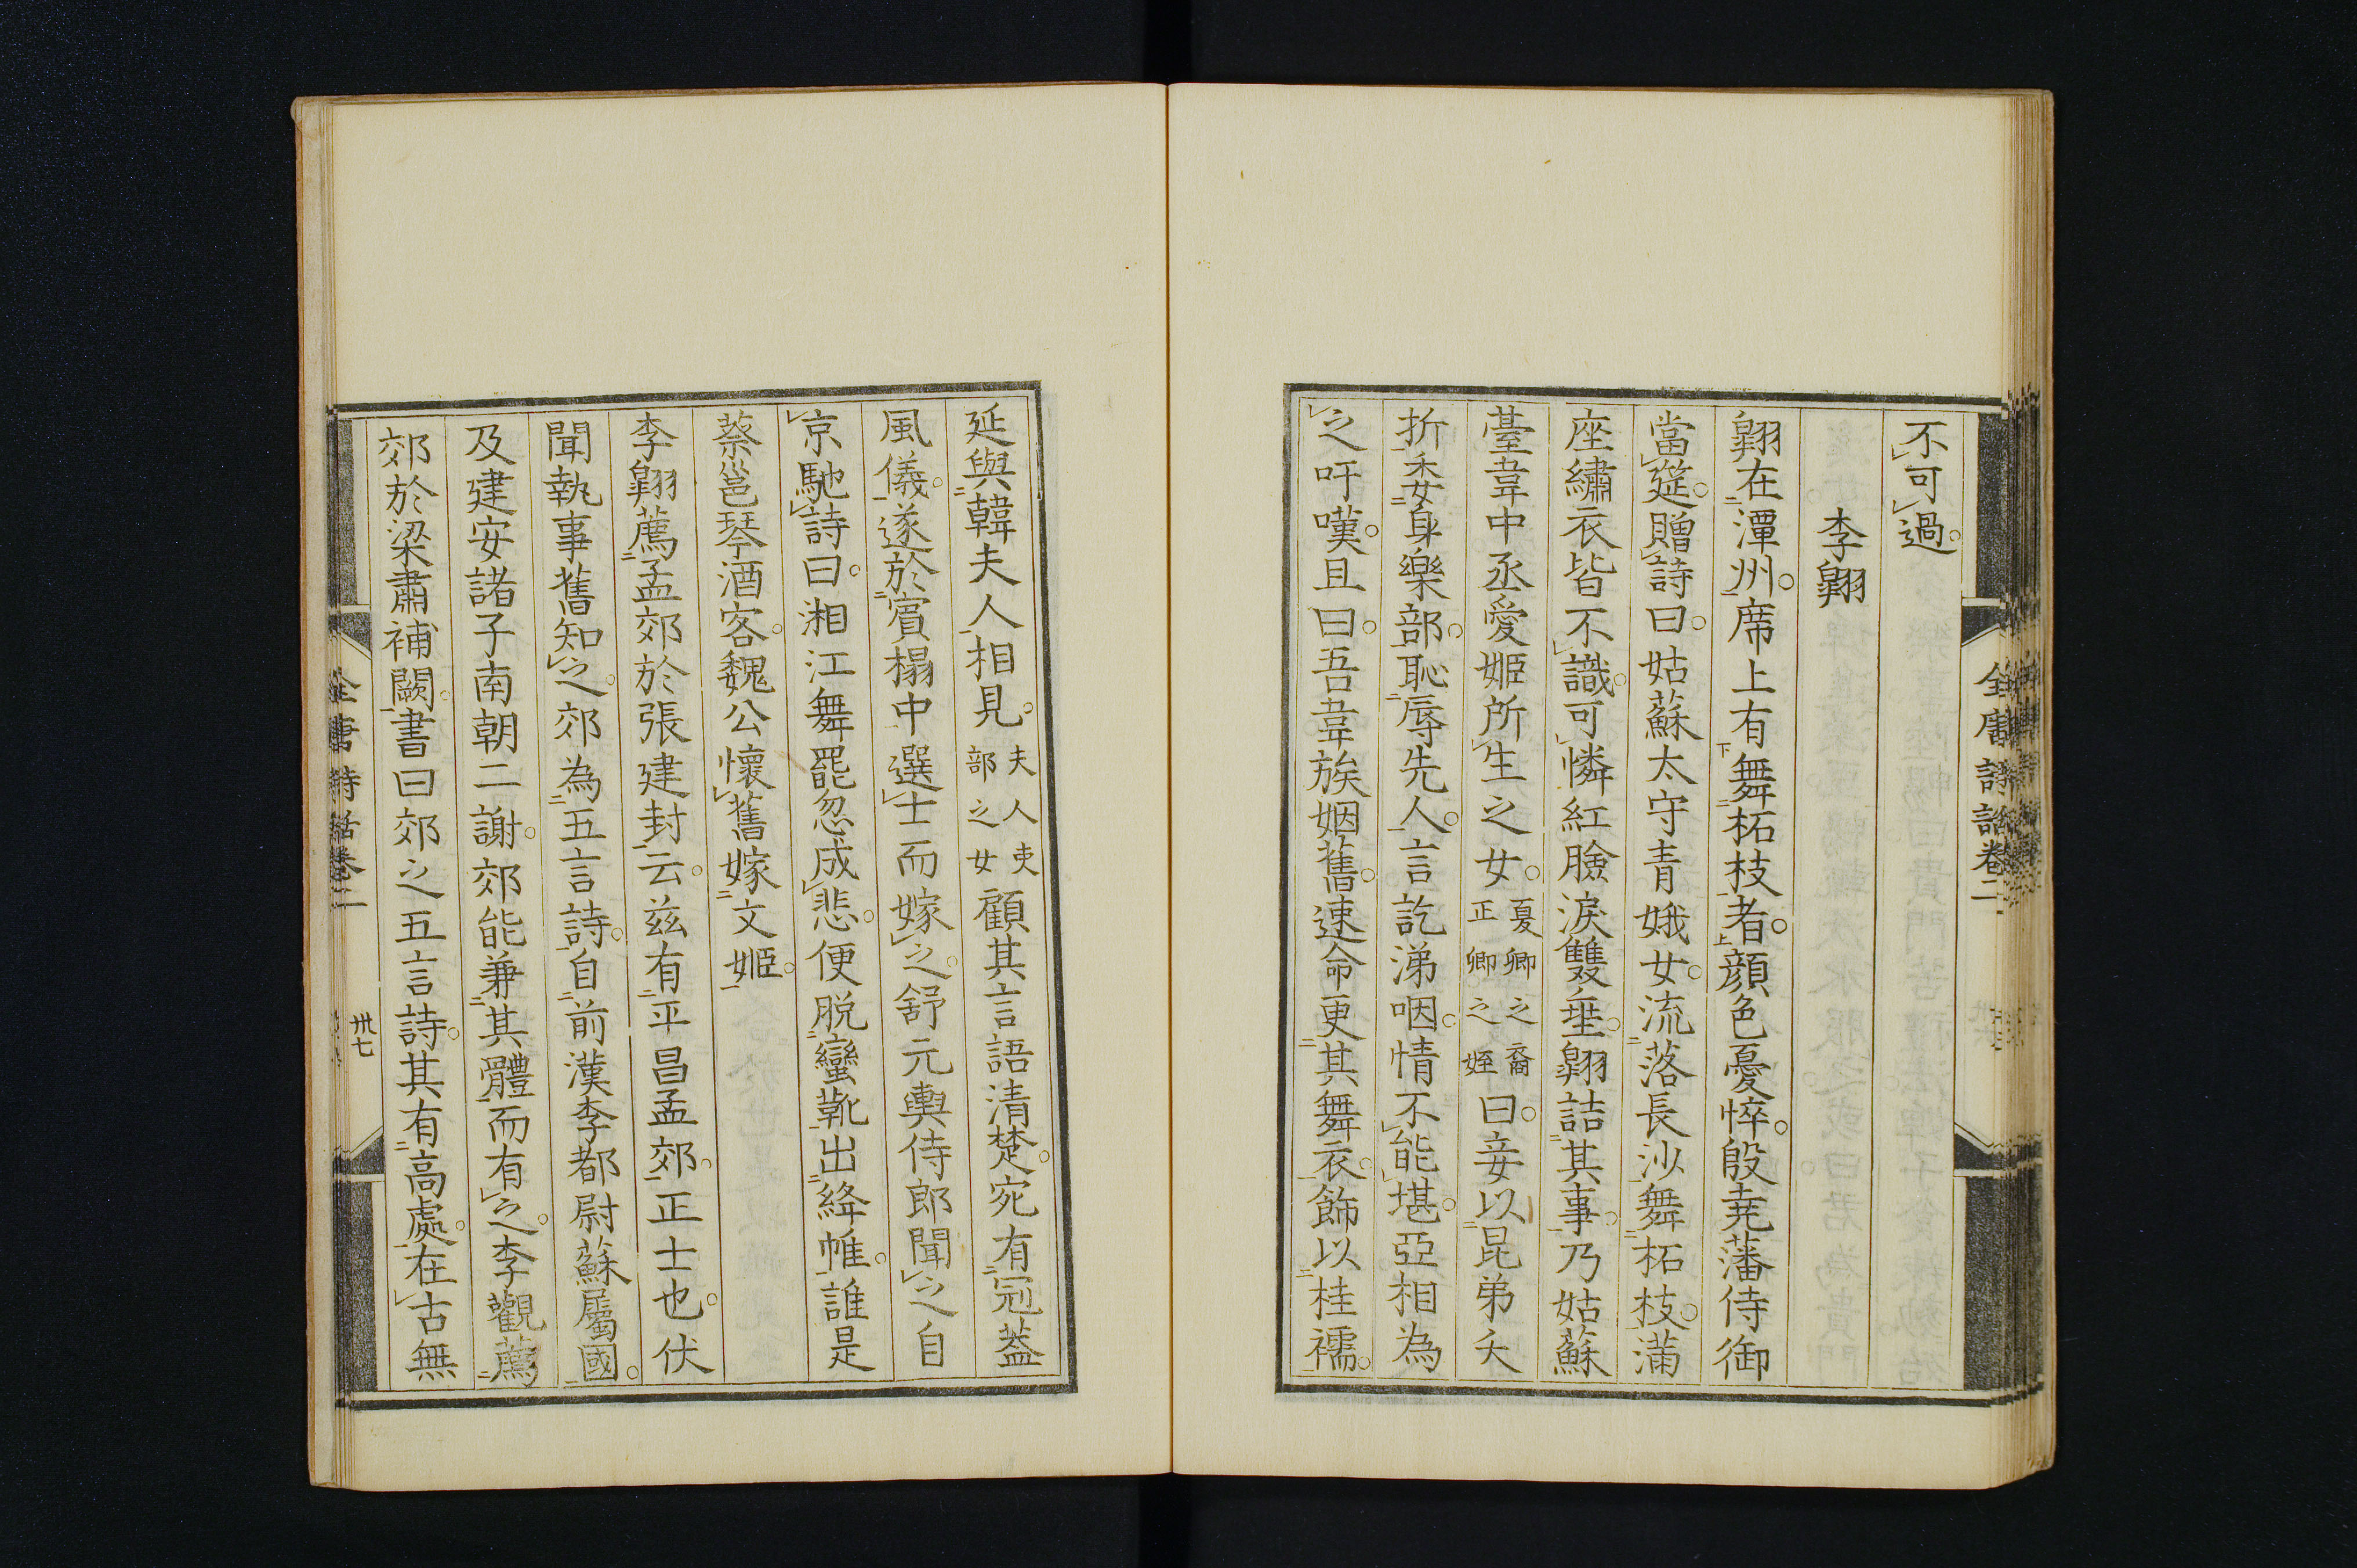 全唐詩話卷二
不可過。
李翺
翺在潭州。席上有舞柘枝者。顔色憂悴。殷堯藩侍御
當筵。贈詩曰。姑蘇太守青娥女。流落長沙舞柘枝。滿
座繡衣皆不識。可憐紅臉淚雙垂。翺詰其事。乃姑蘇
臺韋中丞愛姬所生之女。夏卿之裔正卿之姪曰。妾以昆弟夭
折。委身樂部。恥辱先人。言訖涕咽。情不能堪。亞相為
之吁嘆。且曰。吾韋族姻舊。速命更其舞衣。飾以桂襦。
延與韓夫人相見。夫人吏部之女顧其言語清楚。宛有冠葢
風儀。遂於賓榻中選士而嫁之。舒元輿侍郎聞之自
京馳詩曰。湘江舞罷忽成悲。便脱蠻靴出絳帷。誰是
蔡邕琴酒客。魏公懷舊嫁文姬。
李翺薦孟郊於張建封云。兹有平昌孟郊。正士也。伏
聞執事舊知之。郊為五言詩。自前漢李都尉蘇屬國。
及建安諸子南朝二謝。郊能兼其體而有之。李觀薦
郊於梁肅補闕。書曰郊之五言詩。其有高處。在古無
全唐詩話卷二
卅七